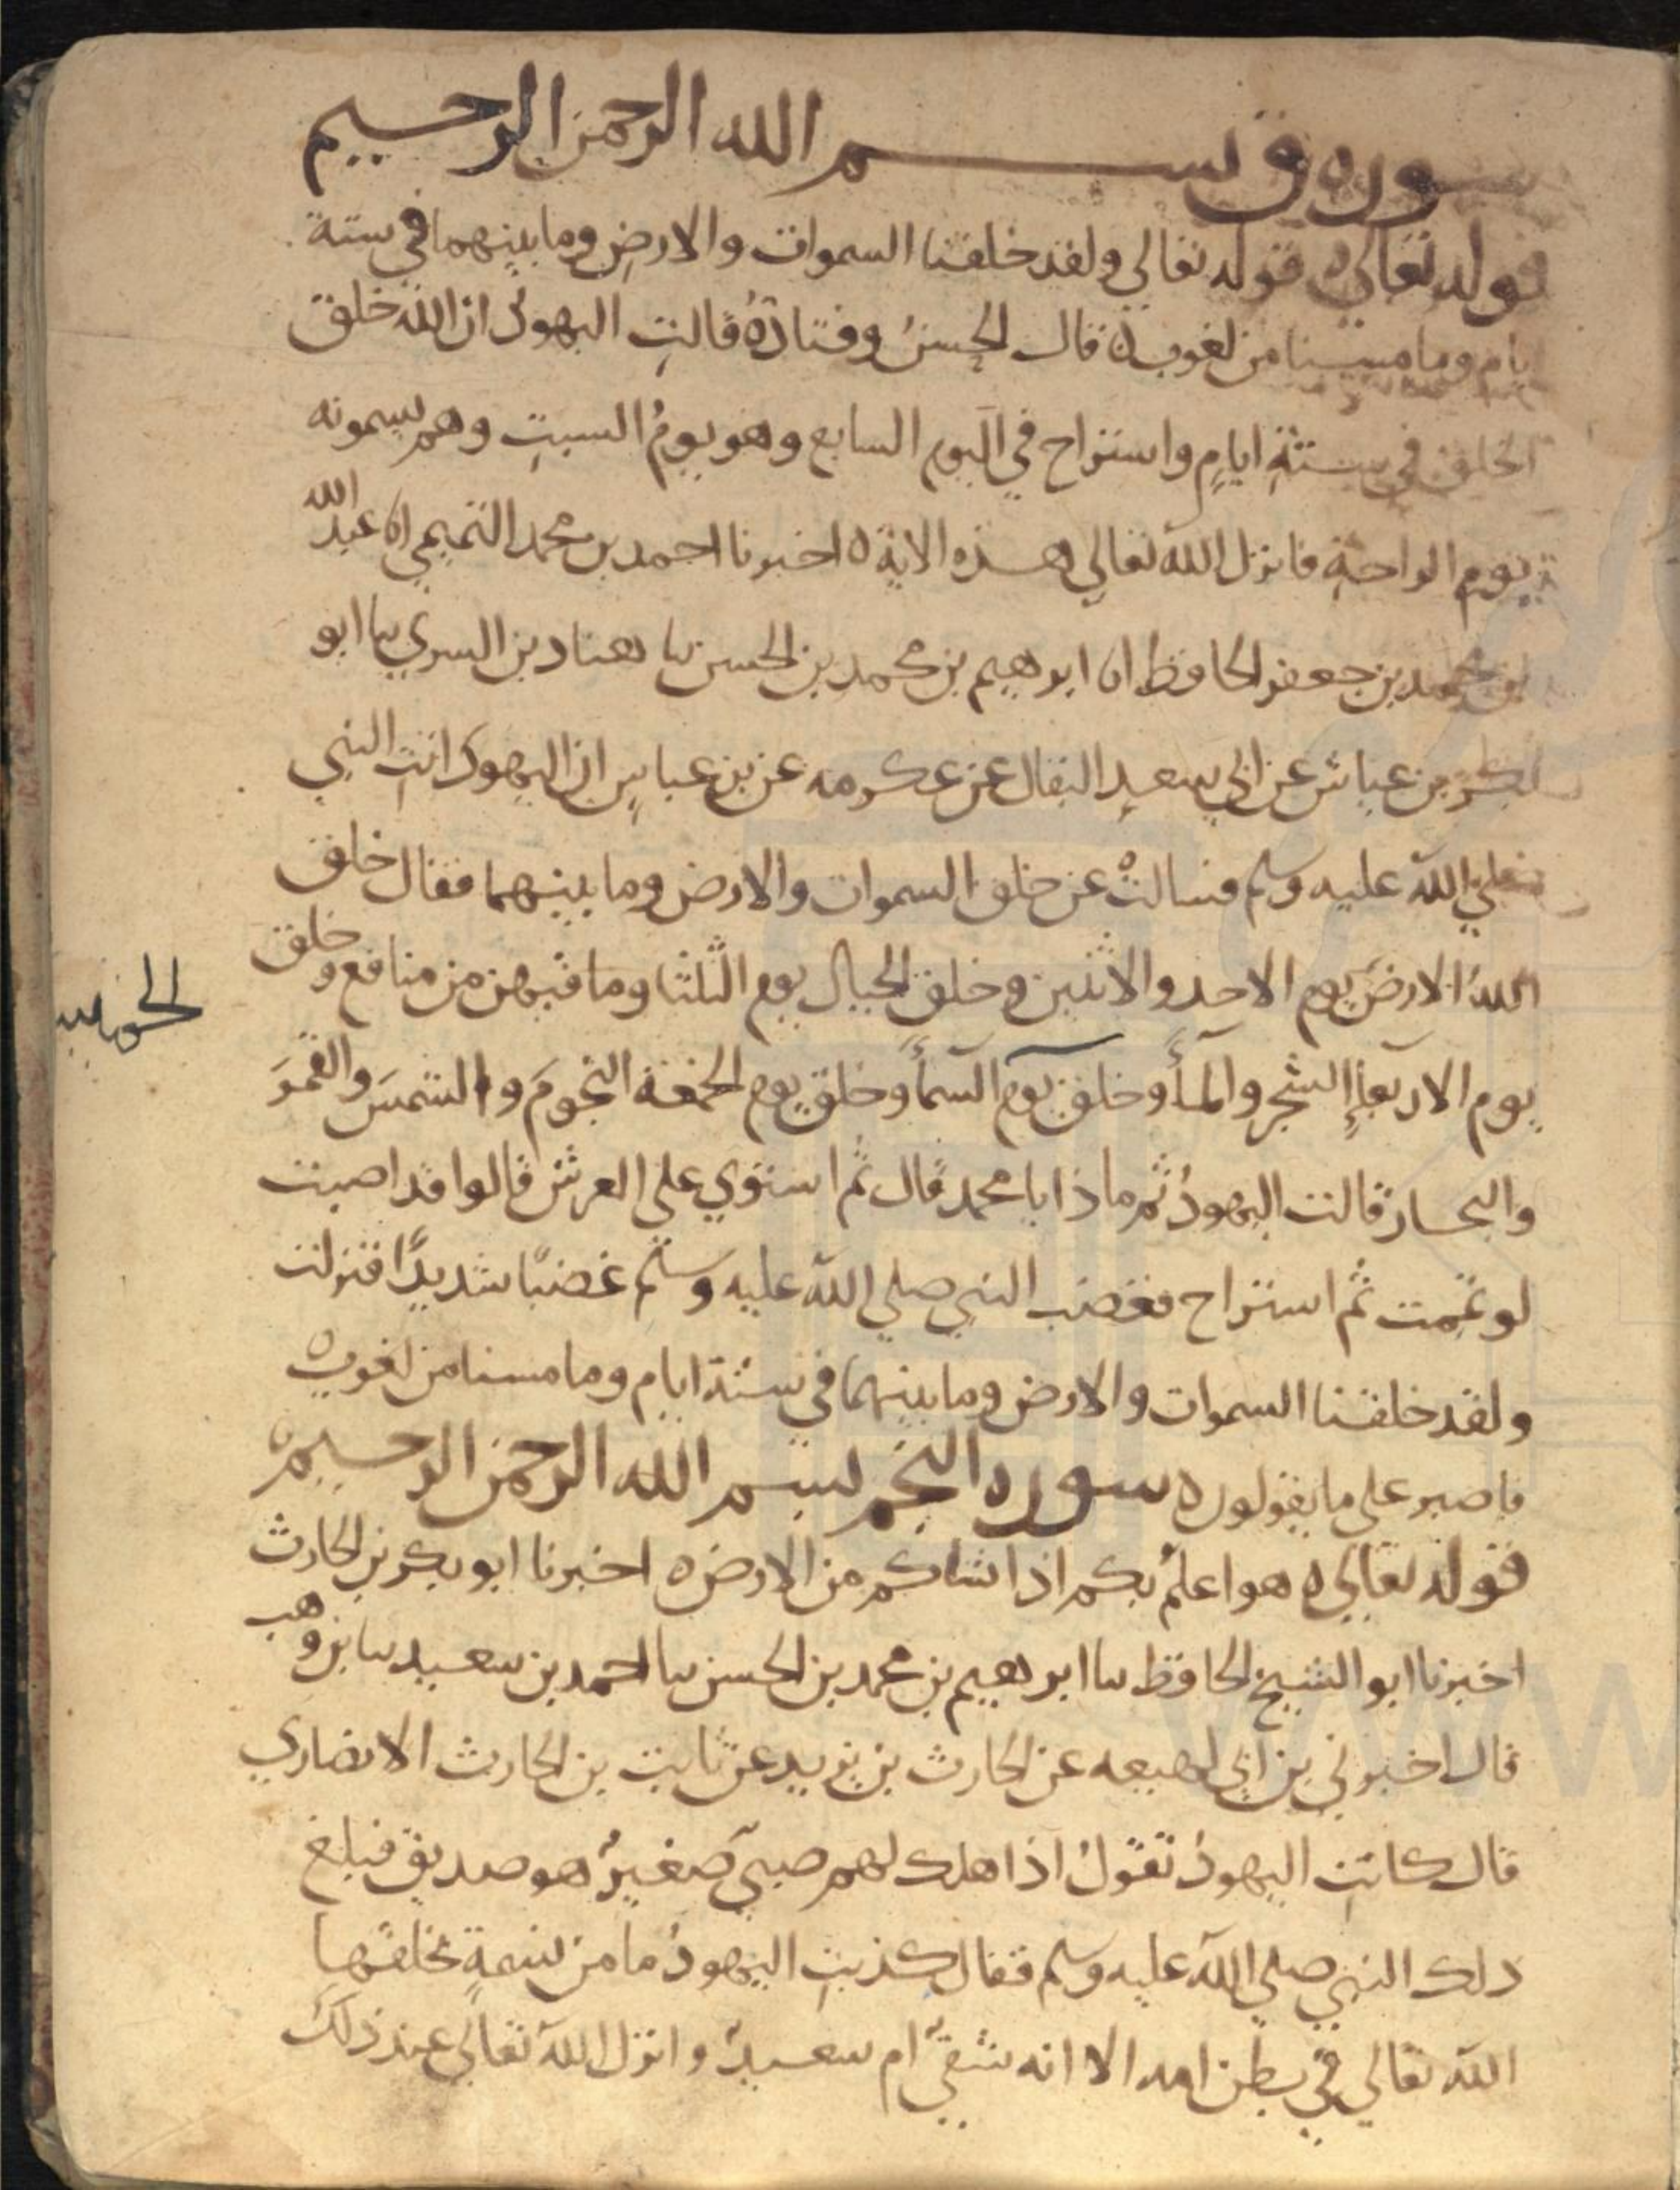 سوره ق بسم الله الرحمن الرحيم
قوله تعالي ه قوله تعالي ولقد خلقنا السموات والارض وما بينهما في ستة
ايام وما مسنا من لغوب ه قال الحسن وقتادة قالت اليهود ان الله خلق
الخلق في ستة ايام واستراح في اليوم السابع وهو يوم السبت وهم يسمونه
يوم الراحة فانزل الله تعالي هذه الاية ه اخبرنا احمد بن محمد التميمي انا عبد الله
بن محمد بن جعفر الحافظ انا ابرهيم بن محمد بن الحسن نا هناد بن السري نا ابو
بكر بن عياش عن ابي سعيد البقال عن عكرمه عن بن عباس ان اليهود اتت النبي
صلي الله عليه وسلم فسالت عن خلق السموات والارض وما بينهما فقال خلق
الله الارض يوم الاحد والاثنين وخلق الجبال يوم الثلثا وما فيهن من منافع وخلق
يوم الاربعاء الشجر والماء وخلق يوم السماء وخلق يوم الجمعة النجوم والشمس والقمر
الخميس
والبحار قالت اليهود ثم ماذا يا محمد قال ثم استوي علي العرش قالوا قد اصبت
لو تممت ثم استراح فغضب النبي صلي الله عليه وسلم غضبا شديدا فنزلت
ولقد خلقنا السموات والارض وما بينهما في ستة ايام وما مسنا من لغوب ه
فاصبر علي ما يقولون ه سوره النجم بسم الله الرحمن الرحيم ه
قوله تعالي ه هو اعلم بكم اذ انشاكم من الارض ه اخبرنا ابو بكر بن الحارث
اخبرنا ابو الشيخ الحافظ نا ابرهيم بن محمد بن الحسن نا احمد بن سعيد نا بن وهب
قال اخبرني بن ابي لهيعه عن الحارث بن يزيد عن ثابت بن الحارث الانصاري
قال كانت اليهود تقول اذا هلك لهم صبي صغير هو صديق فبلغ
ذلك النبي صلي الله عليه وسلم فقال كذبت اليهود ما من نسمة يخلقها
الله تعالي في بطن امه الا انه شقي ام سعيد وانزل الله تعالي عند ذلك